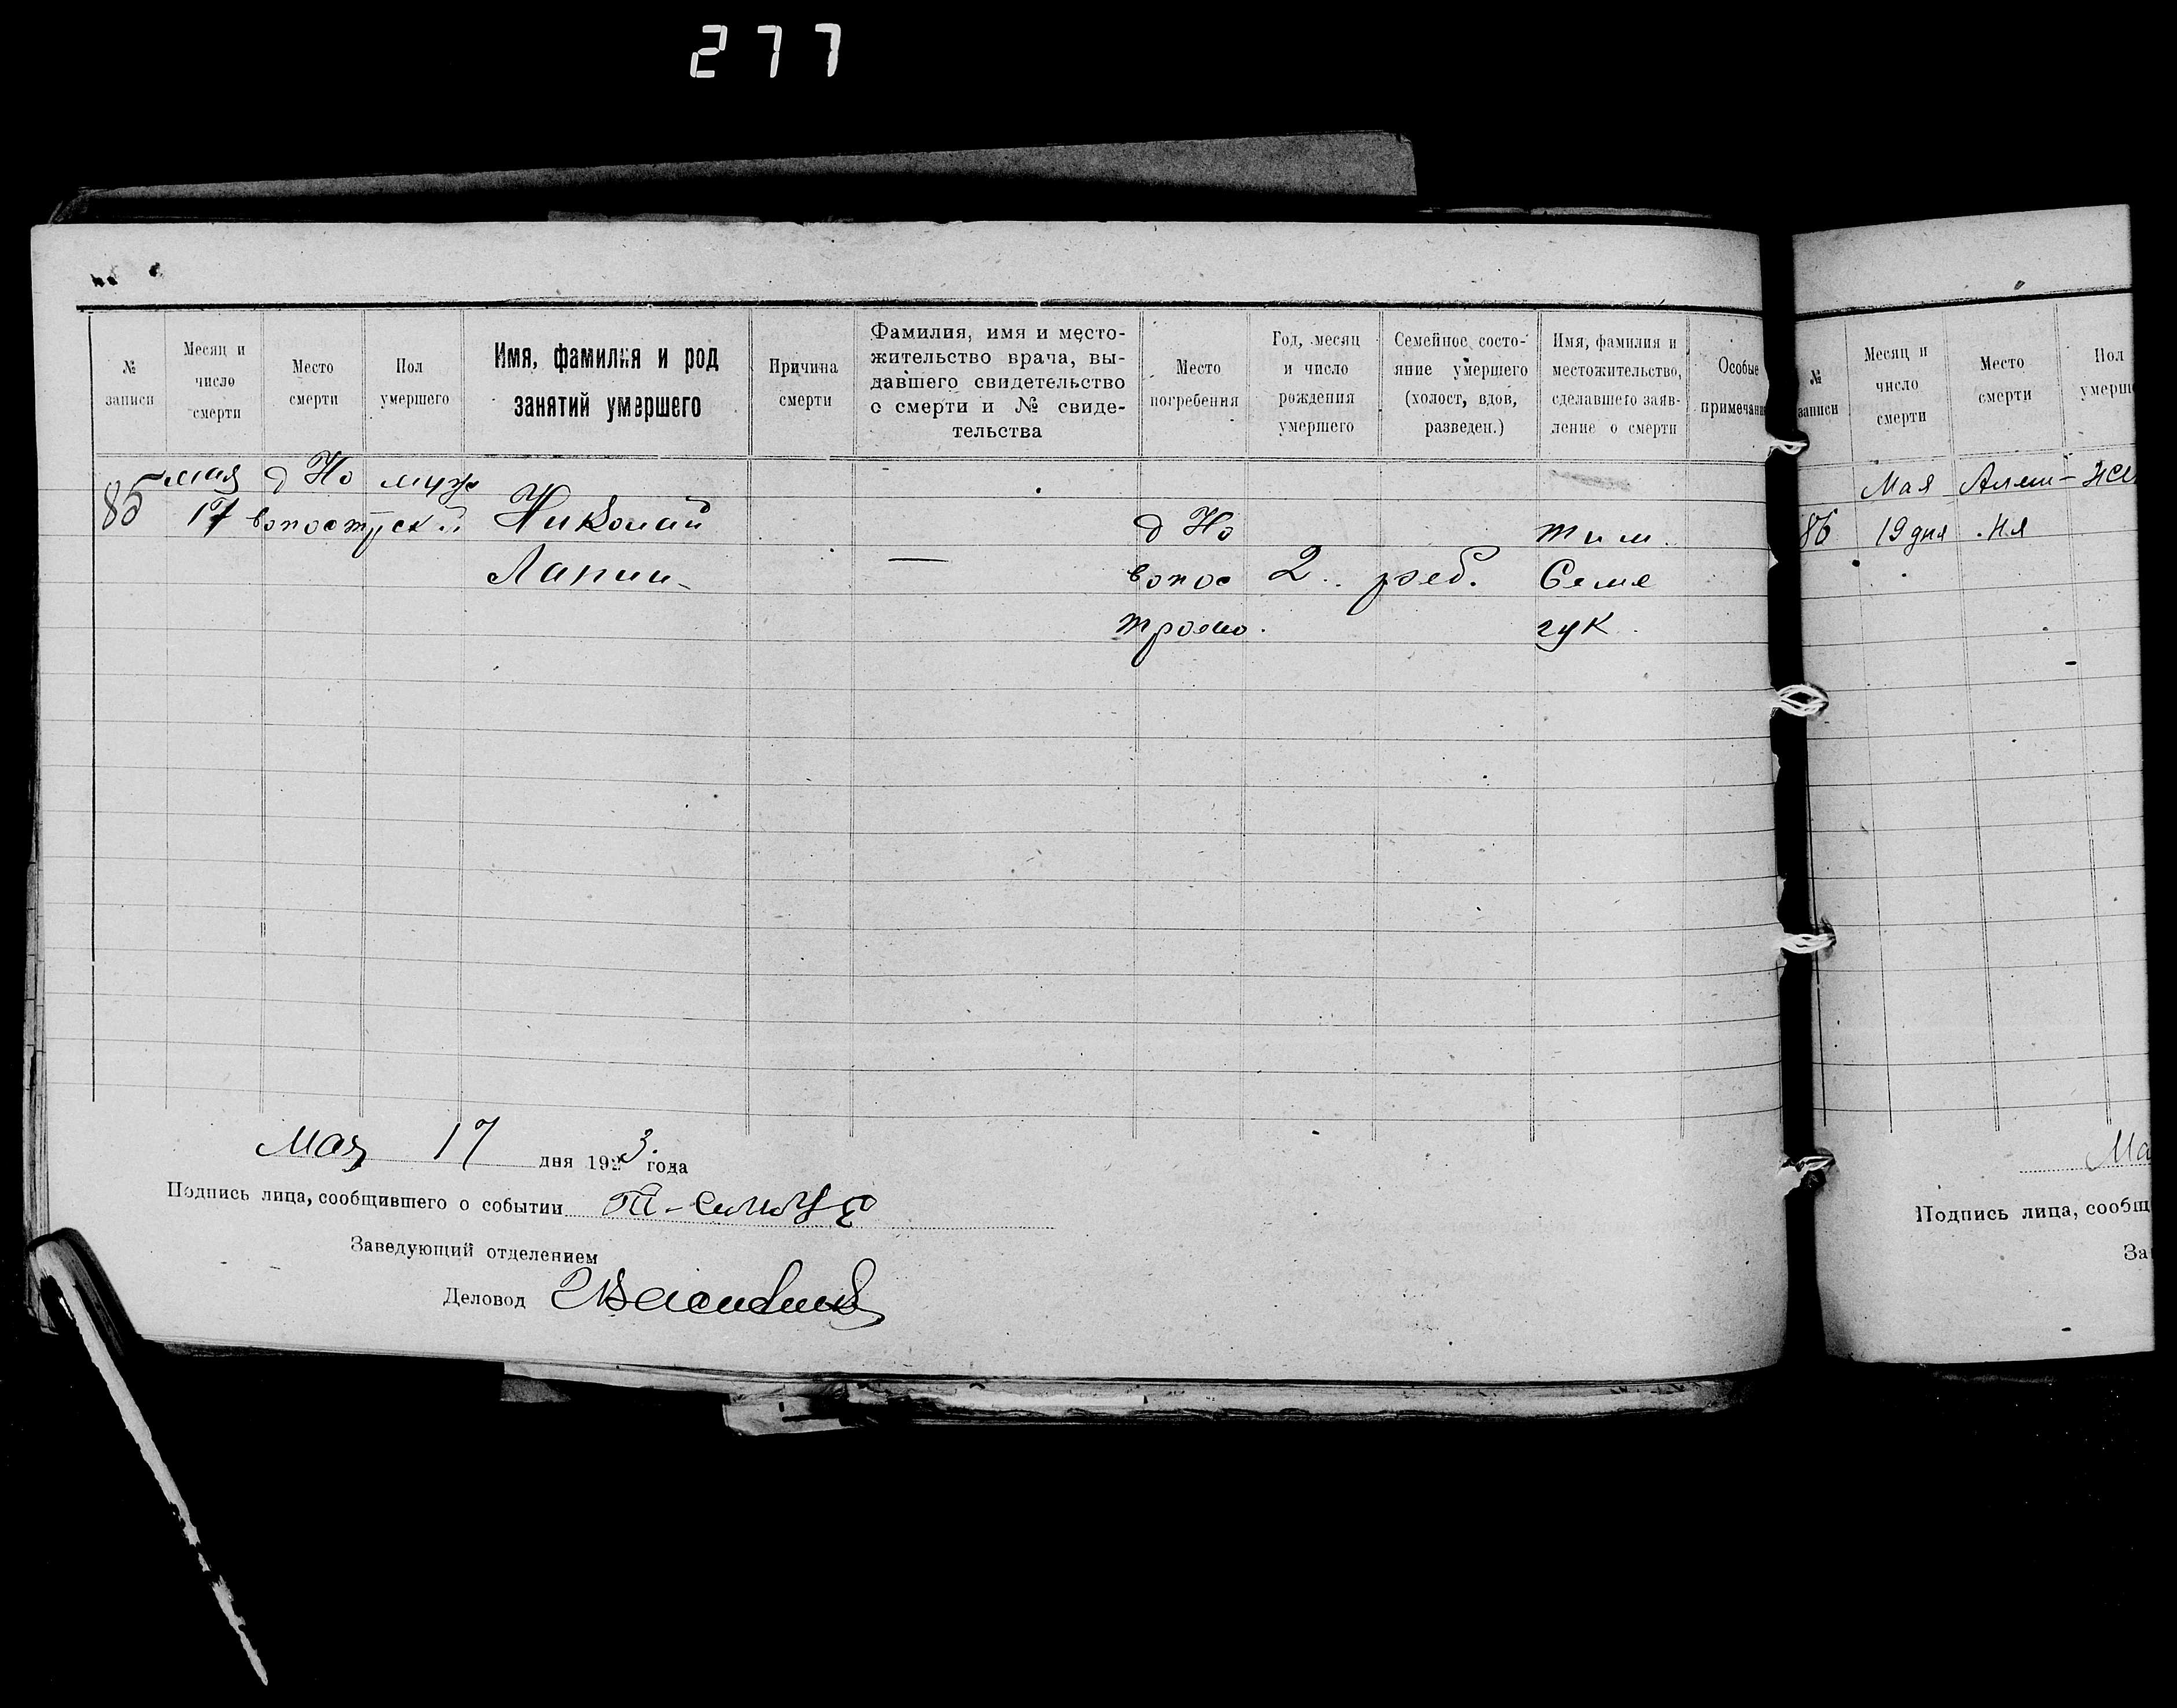 277
№ записи
Месяц и число смерти
Место смерти
Пол умершего
Имя, фамилия и род занятий умершего
Причина смерти
Фамилия, имя и место-
жительство врача, вы-
давшего свидетельство
о смерти и № свиде-
тельства
Место погребения
Год, месяц и число рождения умершего
Семейное состо-
яние умершего
(холост, вдов,
разведен.)
Имя, фамилия и
местожительство,
сделавшего заяв-
ление о смерти
Особые примечани
85
мая
17
д Но
вопост
муж
ской
Николай
Лапин
—
д Но
вопос
троено.
2.
реб.
тим.
Семе
гук
Мая 17 дня 1923 года
Подпись лица, сообщившего о событии
Заведующий отделением
Деловод
№ записи
Месяц и число смерти
Место смерти
Пол умерше
86
Мая
19 дня
Ма
Подпись лица, сообщ
За